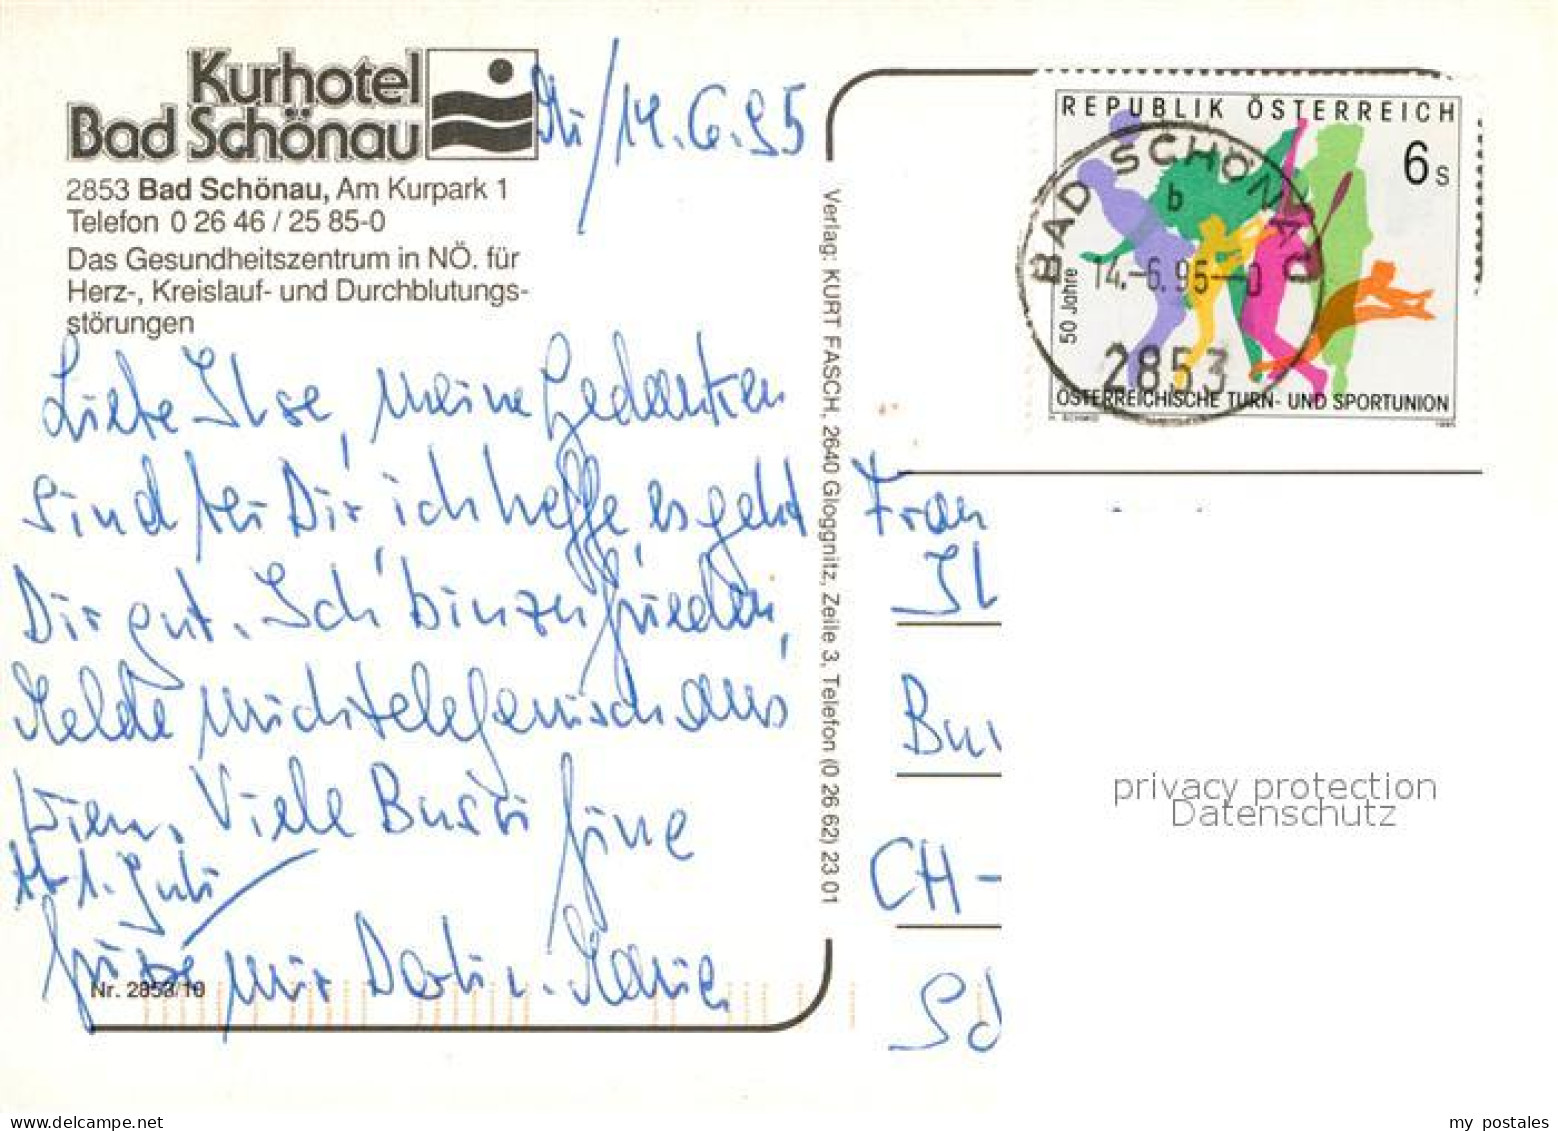 Kurhotel
Bad Schönau
Mi/14.6.95
2853 Bad Schönau, Am Kurpark 1
Telefon 0 26 46 / 25 85-0
Das Gesundheitszentrum in NÖ. für
Herz-, Kreislauf- und Durchblutungs-
störungen
Liebe Ilse, meine Gedanken
sind bei Dir ich hoffe es geht
Dir gut. Ich bin zufrieden,
Melde mich telefonisch aus
Wien. Viele Bussi
1. Juli
Grüße mir
Nr. 2853/10
Verlag: KURT FASCH, 2640 Gloggnitz, Zeile 3, Telefon (0 26 62) 23 01
REPUBLIK ÖSTERREICH
6 s
50 Jahre
ÖSTERREICHISCHE TURN- UND SPORTUNION
1995
BAD SCHÖNAU
b
14.-6.95--0
2853
Frau
Il
Bu
CH-
privacy protection
Datenschutz
my postales